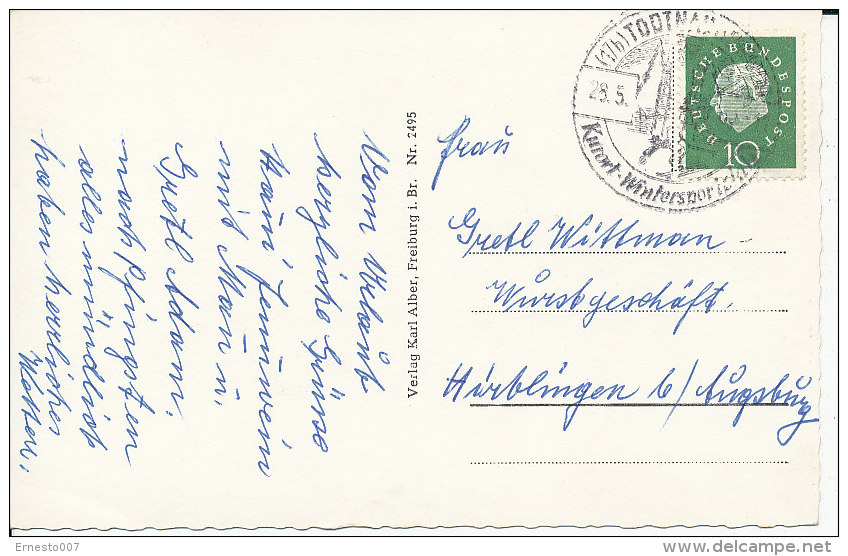 Vom Urlaub
herzliche Grüsse
Hanni Jennwein
mit Mann u.
Gretl Adam.
nach Pfingsten
alles mündlich
haben herrliches
Wetter.
Verlag Karl Alber, Freiburg i. Br. Nr. 2495
(17b) TODTNAU
28.5.
Kurort-Wintersportplatz
DEUTSCHE BUNDESPOST
10
Frau
Gretl Wittman -
Wurstgeschäft.
Hürblingen b/ Augsburg
Ernesto007
www.delcampe.net